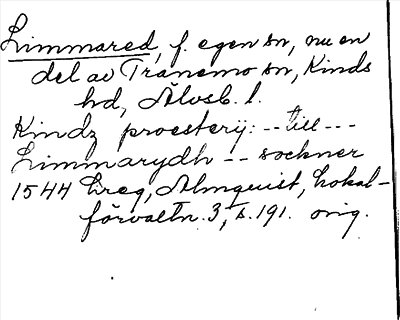 Limmared, f. egen sn, nu en
del av Tranemo sn, Kinds
hd, Älvsb. l.
Kindz proesterij: -- till ---
Limmarydh -- sockner
1544 Lreg, Almquist, Lokal-
förvaltn. 3, s. 191. orig.